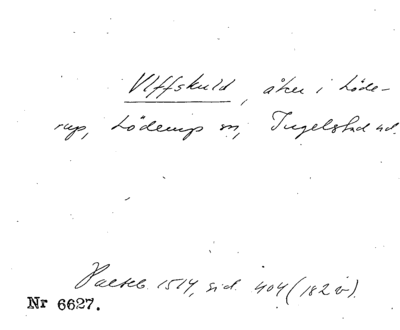 Vlffskuld, åker i Löde-
rup, Löderups sn, Ingelstad hd.
Palteb. 1514, sid. 404 (182 v).
Nr 6627.